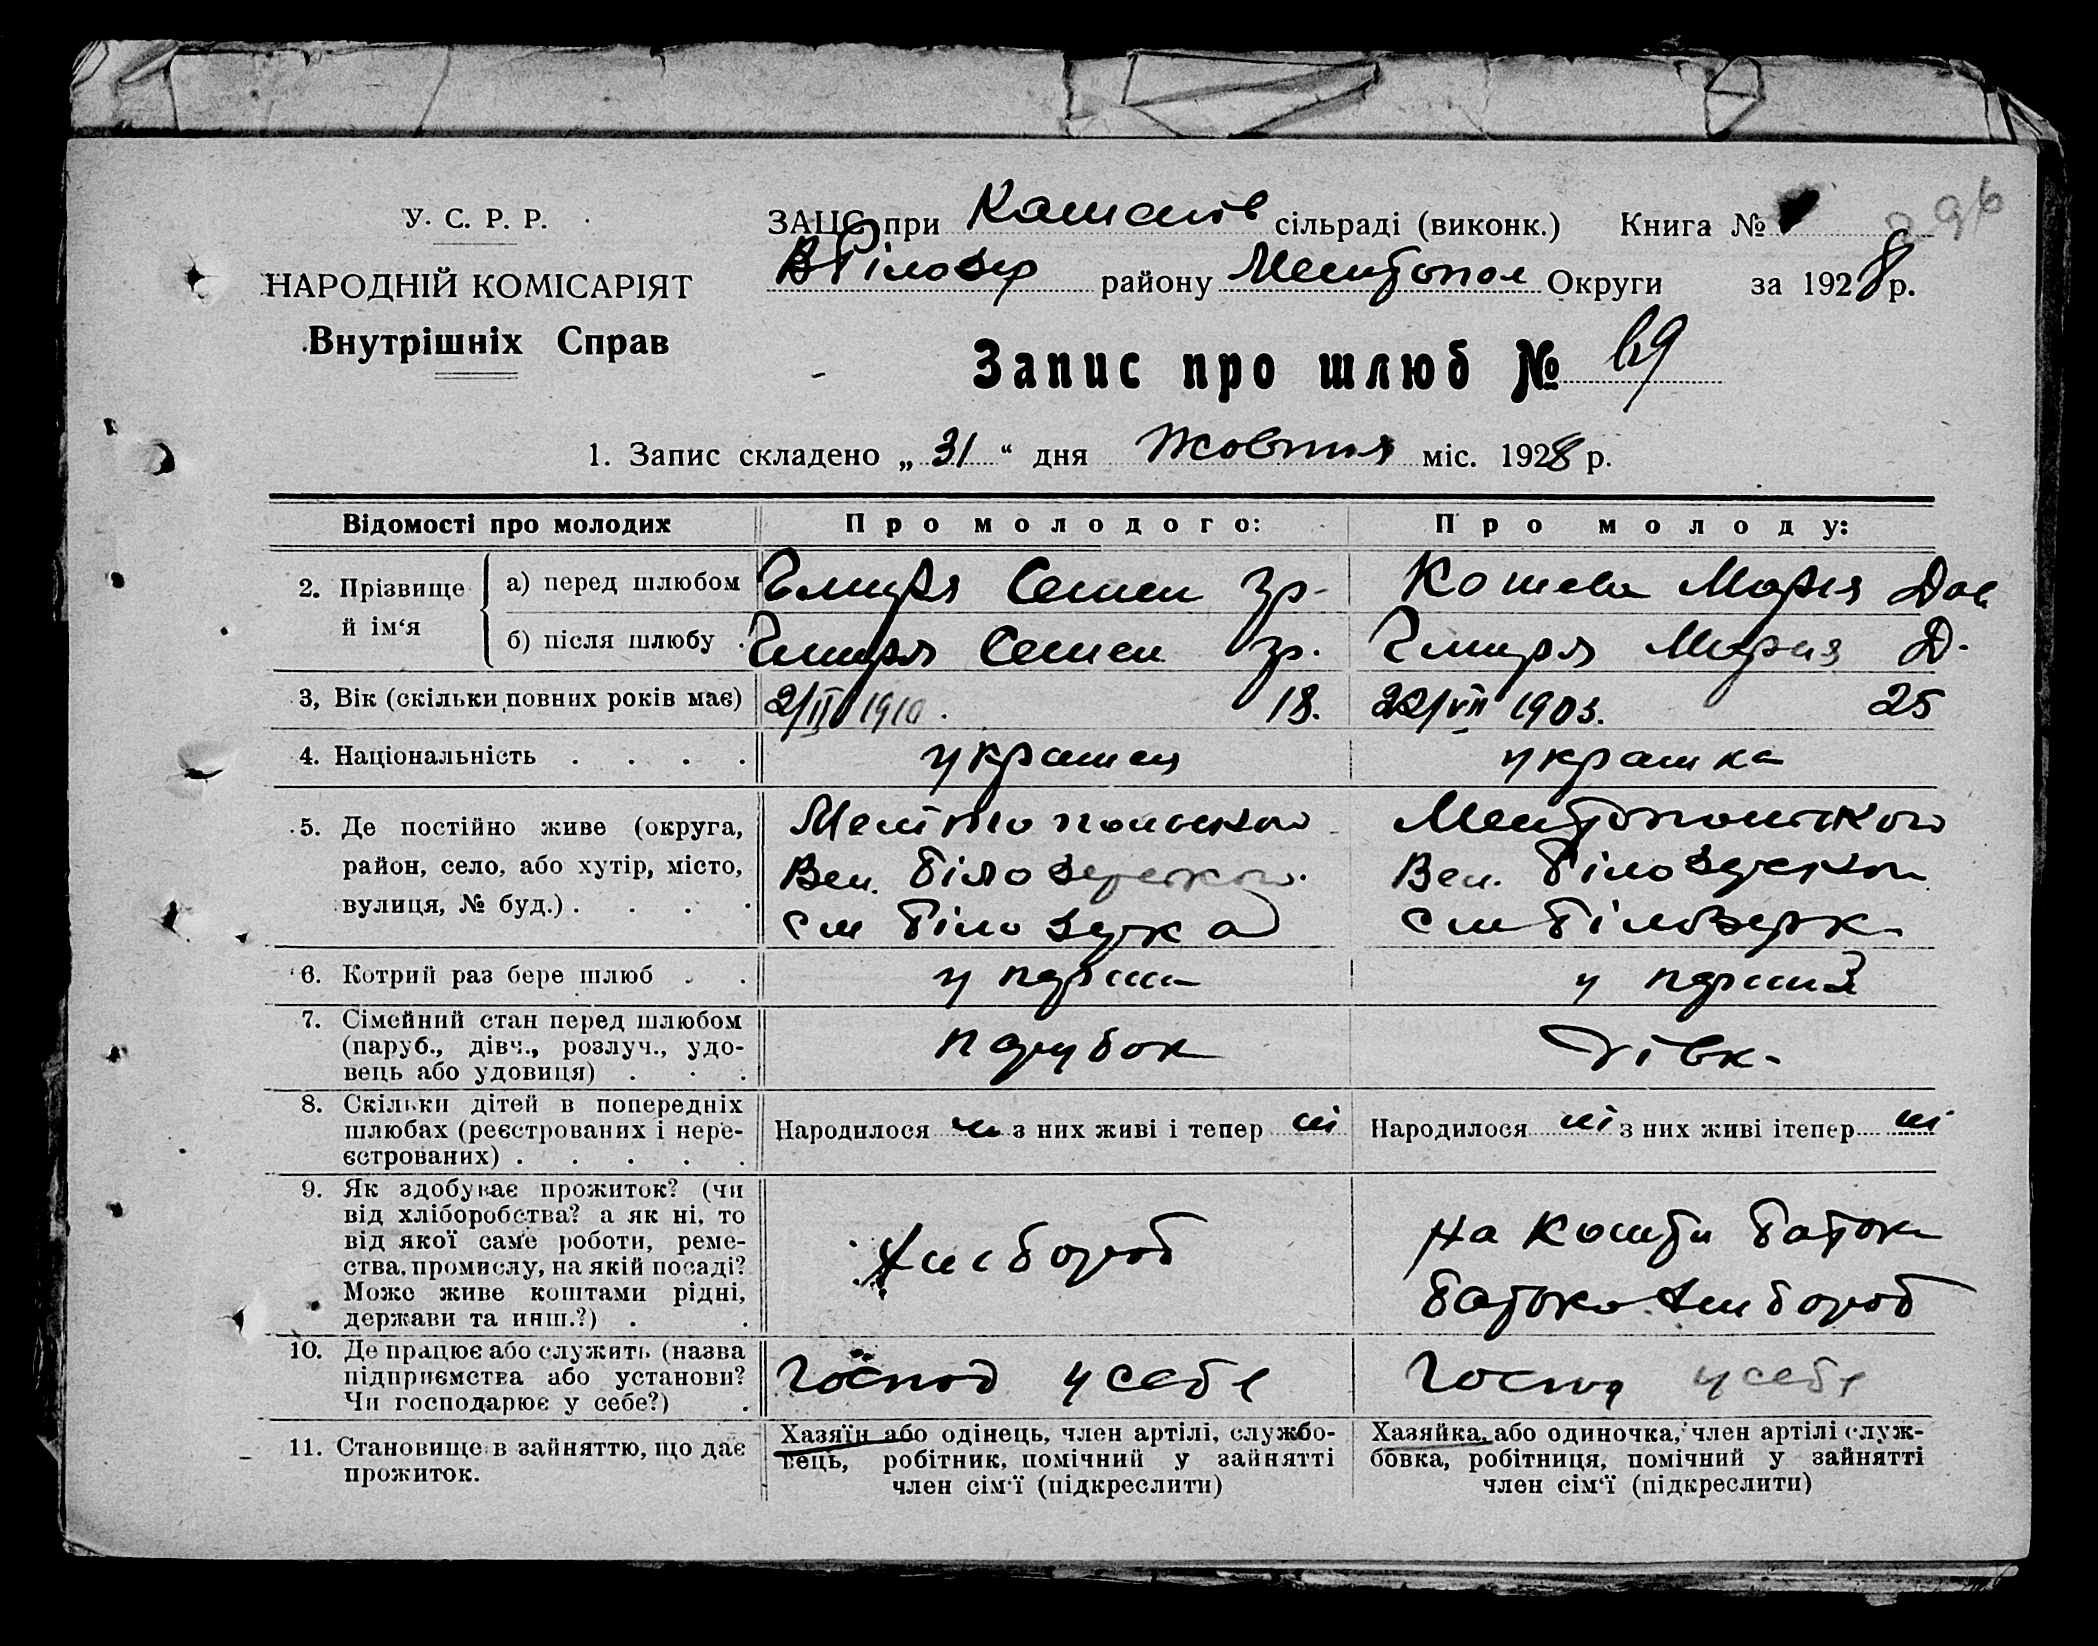 У. С. Р. Р.
НАРОДНІЙ КОМІСАРІЯТ
Внутрішніх Справ
ЗАЦС при сільраді (виконк.) Книга №
В Білозер району Мелитопол Округи за 1928 р.
Запис про шлюб № 69
1. Запис складено „ 31 “ дня Жовтня міс. 1928 р.
Відомості про молодих Про молодого: Про молоду:
2. Прізвище й ім‘я
а) перед шлюбом Семен Гр. Кошева Мария Дав
б) після шлюбу . Семен Гр. Мария Д.
3, Вік (скільки повних років має) 2/II 1910. 18. 22/VII 1903. 25
4. Національність . . . . українец українка
5. Де постійно живе (округа, Мелітопольского Мелитопольского
район, село, або хутір, місто, Вел. Білозерського. Вел. Білозерского
вулиця, № буд.) . . . . см Білозерка см Білозерка
6. Котрий раз бере шлюб . . у перши у перший
7. Сімейний стан перед шлюбом
(паруб., дівч., розлуч., удо- парубок дівк.
вець або удовиця) . . .
8. Скільки дітей в попередніх
шлюбах (реєстрованих і нере- Народилося ні з них живі і тепер ні Народилося ні з них живі ітепер ні
єстрованих) . . . . .
9. Як здобуває прожиток? (чи
від хліборобства? а як ні, то
від якої саме роботи, реме- Хлібороб На кошти батька
ства, промислу, на якій посаді?
Може живе коштами рідні, батько хлібороб
держави та инш.?) . .
10. Де працює або служить (назва
підприємства або установи? Господ у себе Господ у себе
Чи господарює у себе?) .
11. Становище в зайняттю, що дає
прожиток.
Хазяїн або одінець, член артілі, службо-
вець, робітник, помічний у зайнятті
член сім‘ї (підкреслити)
Хазяйка, або одиночка, член артілі служ-
бовка, робітниця, помічний у зайнятті
член сім‘ї (підкреслити)